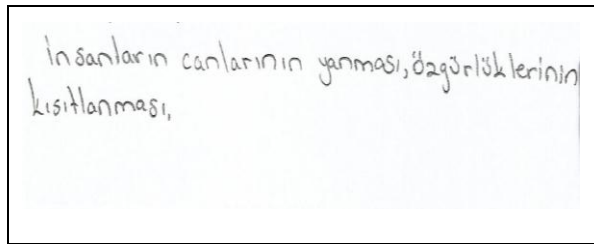 İnsanların canlarının yanması, özgürlüklerinin
kısıtlanması,